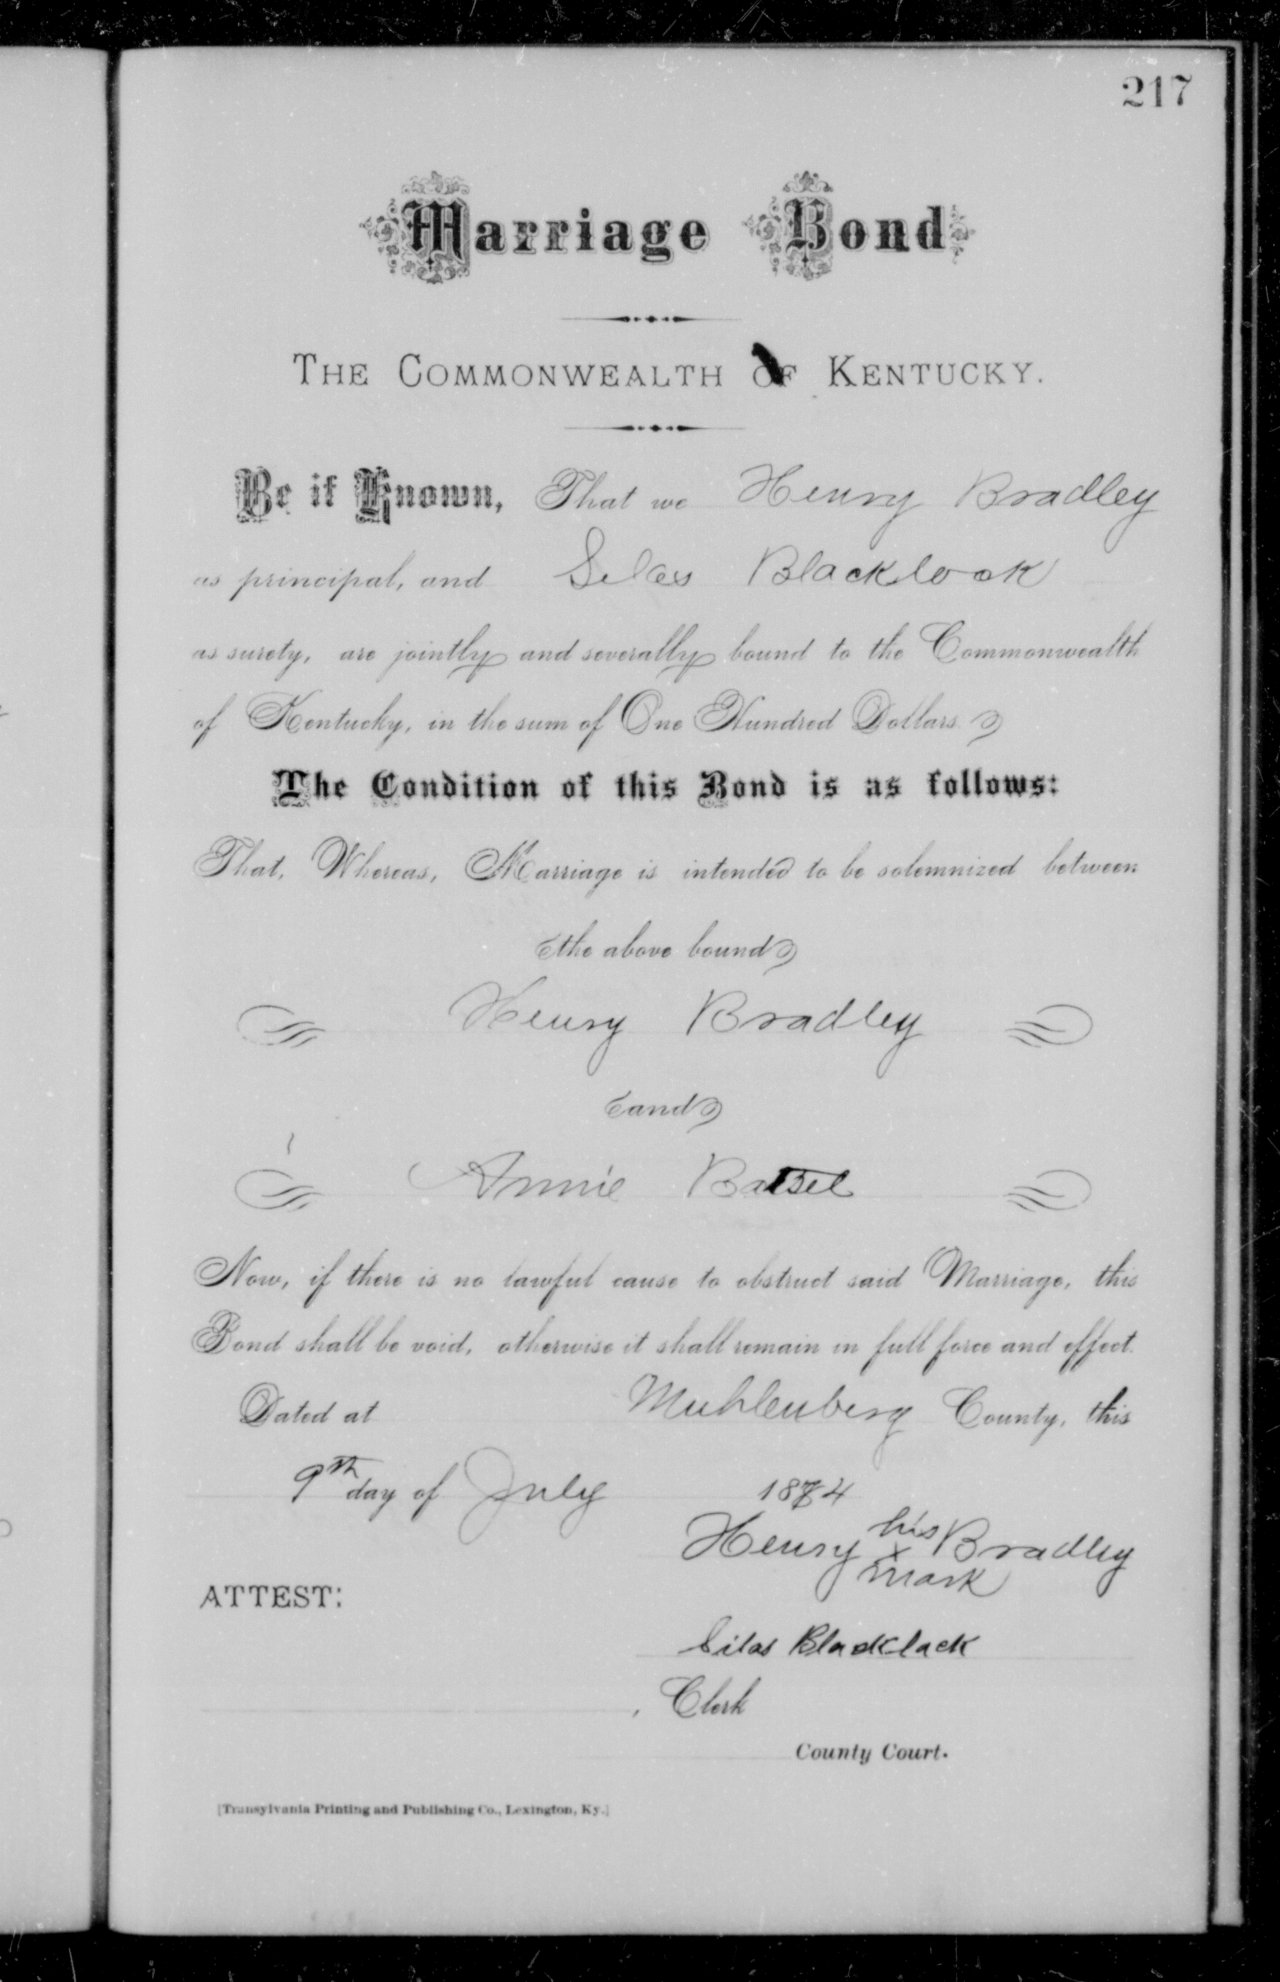 217
Marriage Bond
THE COMMONWEALTH OF KENTUCKY.
Be it Known, That we Henry Bradley
as principal, and Silas Blacklock
as surety, are jointly and severally bound to the Commonwealth
of Kentucky, in the sum of One Hundred Dollars.
The Condition of this Bond is as follows:
That, Whereas, Marriage is intended to be solemnized between
the above bound
Henry Bradley
and
Annie Batsel
Now, if there is no lawful cause to obstruct said Marriage, this
Bond shall be void, otherwise it shall remain in full force and effect.
Dated at Muhlenberg County, this
9th day of July 1874
Henry his x mark Bradley
ATTEST:
Silas Blacklack
, Clerk
County Court.
[Transylvania Printing and Publishing Co., Lexington, Ky.]